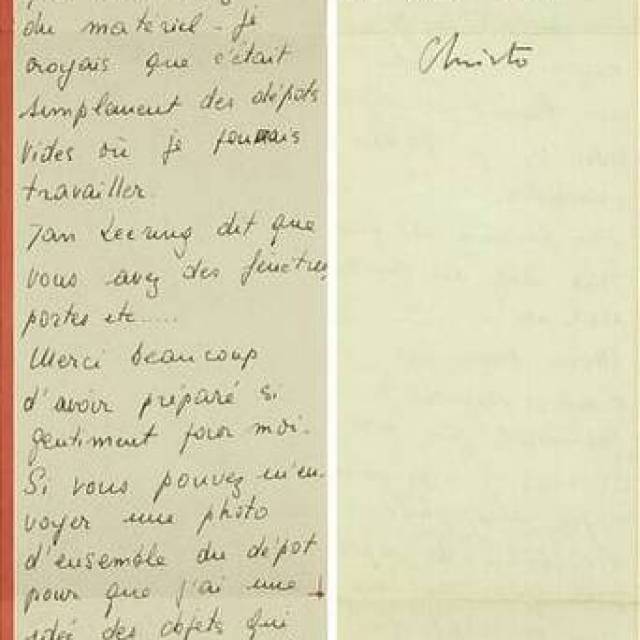 du materiel - je
croyais que c'était
simplament des dépots
vides où je pouvais
travailler.
Jan Leering dit que
vous avez des fenêtres
portes etc.....
Merci beaucoup
d'avoir préparé si
gentiment pour moi.
Si vous pouvez m'en-
voyer une photo
d'ensemble du dépot
pour que j'ai une
idée des objets qui
Christo